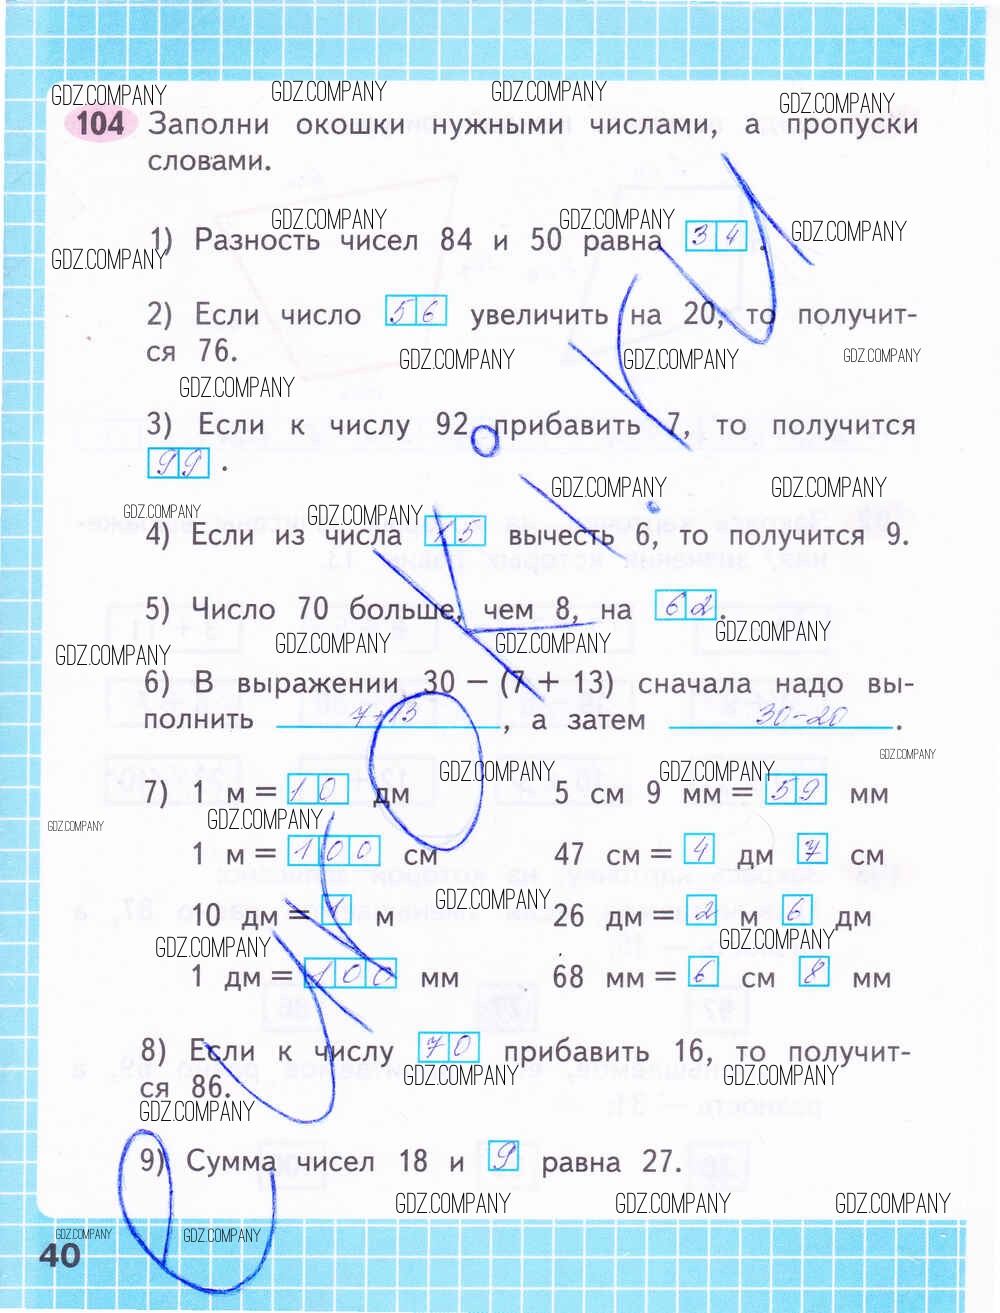 GDZ.COMPANY GDZ.COMPANY GDZ.COMPANY GDZ.COMPANY
104 Заполни окошки нужными числами, а пропуски
словами.
GDZ.COMPANY GDZ.COMPANY GDZ.COMPANY
1) Разность чисел 84 и 50 равна 34 .
GDZ.COMPANY
2) Если число 56 увеличить на 20, то получит-
ся 76.
GDZ.COMPANY GDZ.COMPANY GDZ.COMPANY
GDZ.COMPANY
3) Если к числу 92 прибавить 7, то получится
99 .
GDZ.COMPANY GDZ.COMPANY
GDZ.COMPANY GDZ.COMPANY
4) Если из числа 15 вычесть 6, то получится 9.
5) Число 70 больше, чем 8, на 62 .
GDZ.COMPANY GDZ.COMPANY GDZ.COMPANY GDZ.COMPANY
6) В выражении 30 − (7 + 13) сначала надо вы-
полнить 7+13 , а затем 30-20 .
GDZ.COMPANY GDZ.COMPANY GDZ.COMPANY
7) 1 м = 10 дм 5 см 9 мм = 59 мм
GDZ.COMPANY GDZ.COMPANY
1 м = 100 см 47 см = 4 дм 7 см
GDZ.COMPANY
10 дм = 1 м 26 дм = 2 м 6 дм
GDZ.COMPANY GDZ.COMPANY
1 дм = 100 мм 68 мм = 6 см 8 мм
8) Если к числу 70 прибавить 16, то получит-
ся 86.
GDZ.COMPANY GDZ.COMPANY
GDZ.COMPANY
9) Сумма чисел 18 и 9 равна 27.
GDZ.COMPANY GDZ.COMPANY GDZ.COMPANY
GDZ.COMPANY GDZ.COMPANY
40